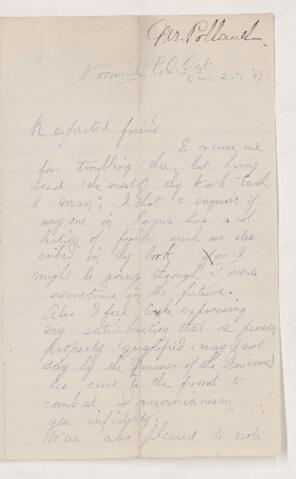 Mr. Pollard.
Norwich P.O. Ont
Respected friend.
Excuse me
for troubling thee, but having
read (the most of) thy work
& man", I that to enquire if
any one in has a col-
lection of fossils such as des-
cribed in thy book. as I
might be going through
sometime in the future.
Also I feel like expressing
my satisfaction that a person
properly qualified (may I not
say by the of the Universe)
has come to the front to
combat
yes infidelity.
Was also pleased to note